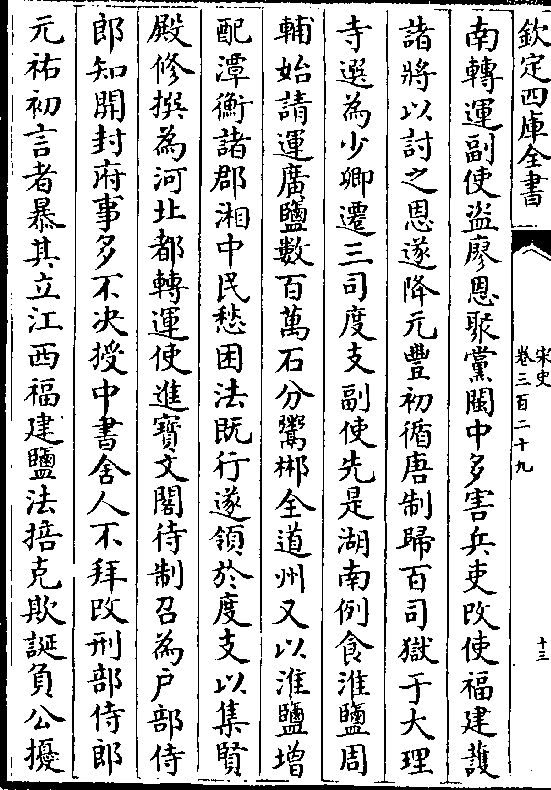 欽定四庫全書
宋史
卷三百二十九
十三
南轉運副使盜廖恩聚黨閩中多害兵吏改使福建䕶
諸將以討之恩遂降元豐初循唐制歸百司獄于大理
寺選為少卿遷三司度支副使先是湖南例食淮鹽周
輔始請運廣鹽數百萬石分鬻郴全道州又以淮鹽增
配潭衡諸郡湘中民愁困法既行遂領於度支以集賢
殿修撰為河北都轉運使進寶文閣待制召為戶部侍
郎知開封府事多不決授中書舍人不拜改刑部侍郎
元祐初言者暴其立江西福建鹽法掊克欺誕負公擾